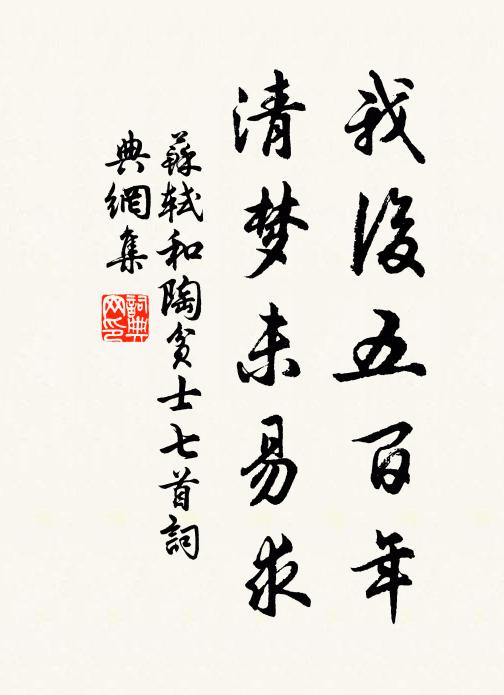 我後五百年
清梦未易求
蘇軾和陶貧士七首詞
典網集
詞典网印